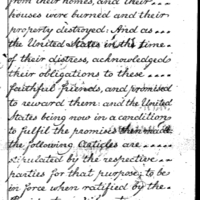 from their homes, and their
houses were burned and their
property destroyed: And as
the United States in the time
of their distress, acknowledged
their obligations to these
faithful friends, and promised
to reward them: and the United
States being now in a condition
to fulfil the promises then made
the following articles are
stipulated by the respective
parties for that purpose; to be
in force when ratified by the